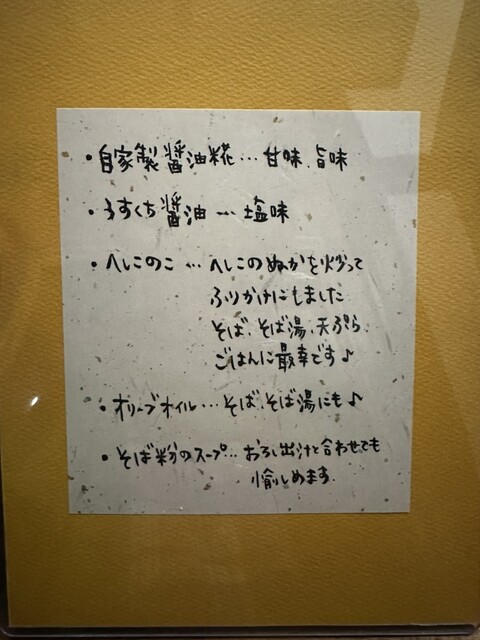 ・自家製醤油糀…甘味、旨味
・うすくち醤油…塩味
・へしこのこ…へしこのぬかを炒って
ふりかけにもました
そば、そば湯、天ぷら、
ごはんに最幸です♪
・オリーブオイル…そば、そば湯にも♪
・そば粉のスープ…おろし出汁と合わせても
愉しめます。